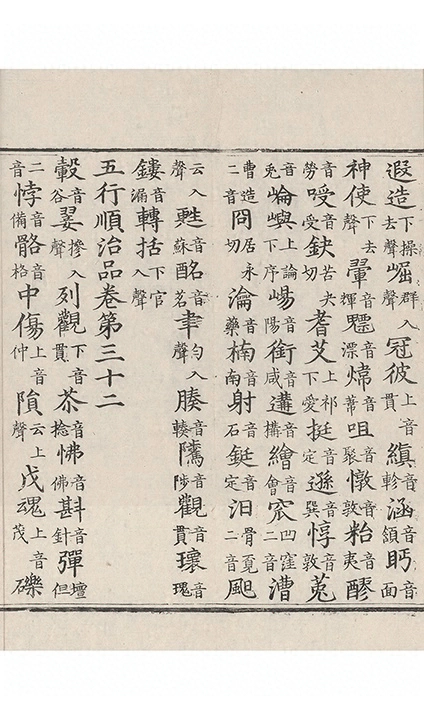 遐造下操去聲崛群入聲冠彼上音貫縝音軫涵音頷眄音面
神使下去聲翬音輝驃音漂煒音葦咀音聚憞音敦粭音夷醪音
勞㖟音受缺苦夬切耆艾上祁下愛挺音定遜音巽惇音敦菟音
兎惀嶼上論下序崵音陽銜音咸遘音搆繪音會窊凹窪二音漕
曹造二音冏居永切瀹音藥楠音南射音石鋌音定汩骨覓二音颶
云入聲甦音蘇酩音茗聿勻入聲腠音輳隲音陟觀音貫瓌音瑰
鏤音漏轉括下官入聲
五行順治品卷第三十二
轂音谷翣摻入聲列觀下音貫荼音捻怫音佛斟音針彈音壇但
二音悖音備骼音格中傷上音仲隕云上聲戊魂上音茂礫